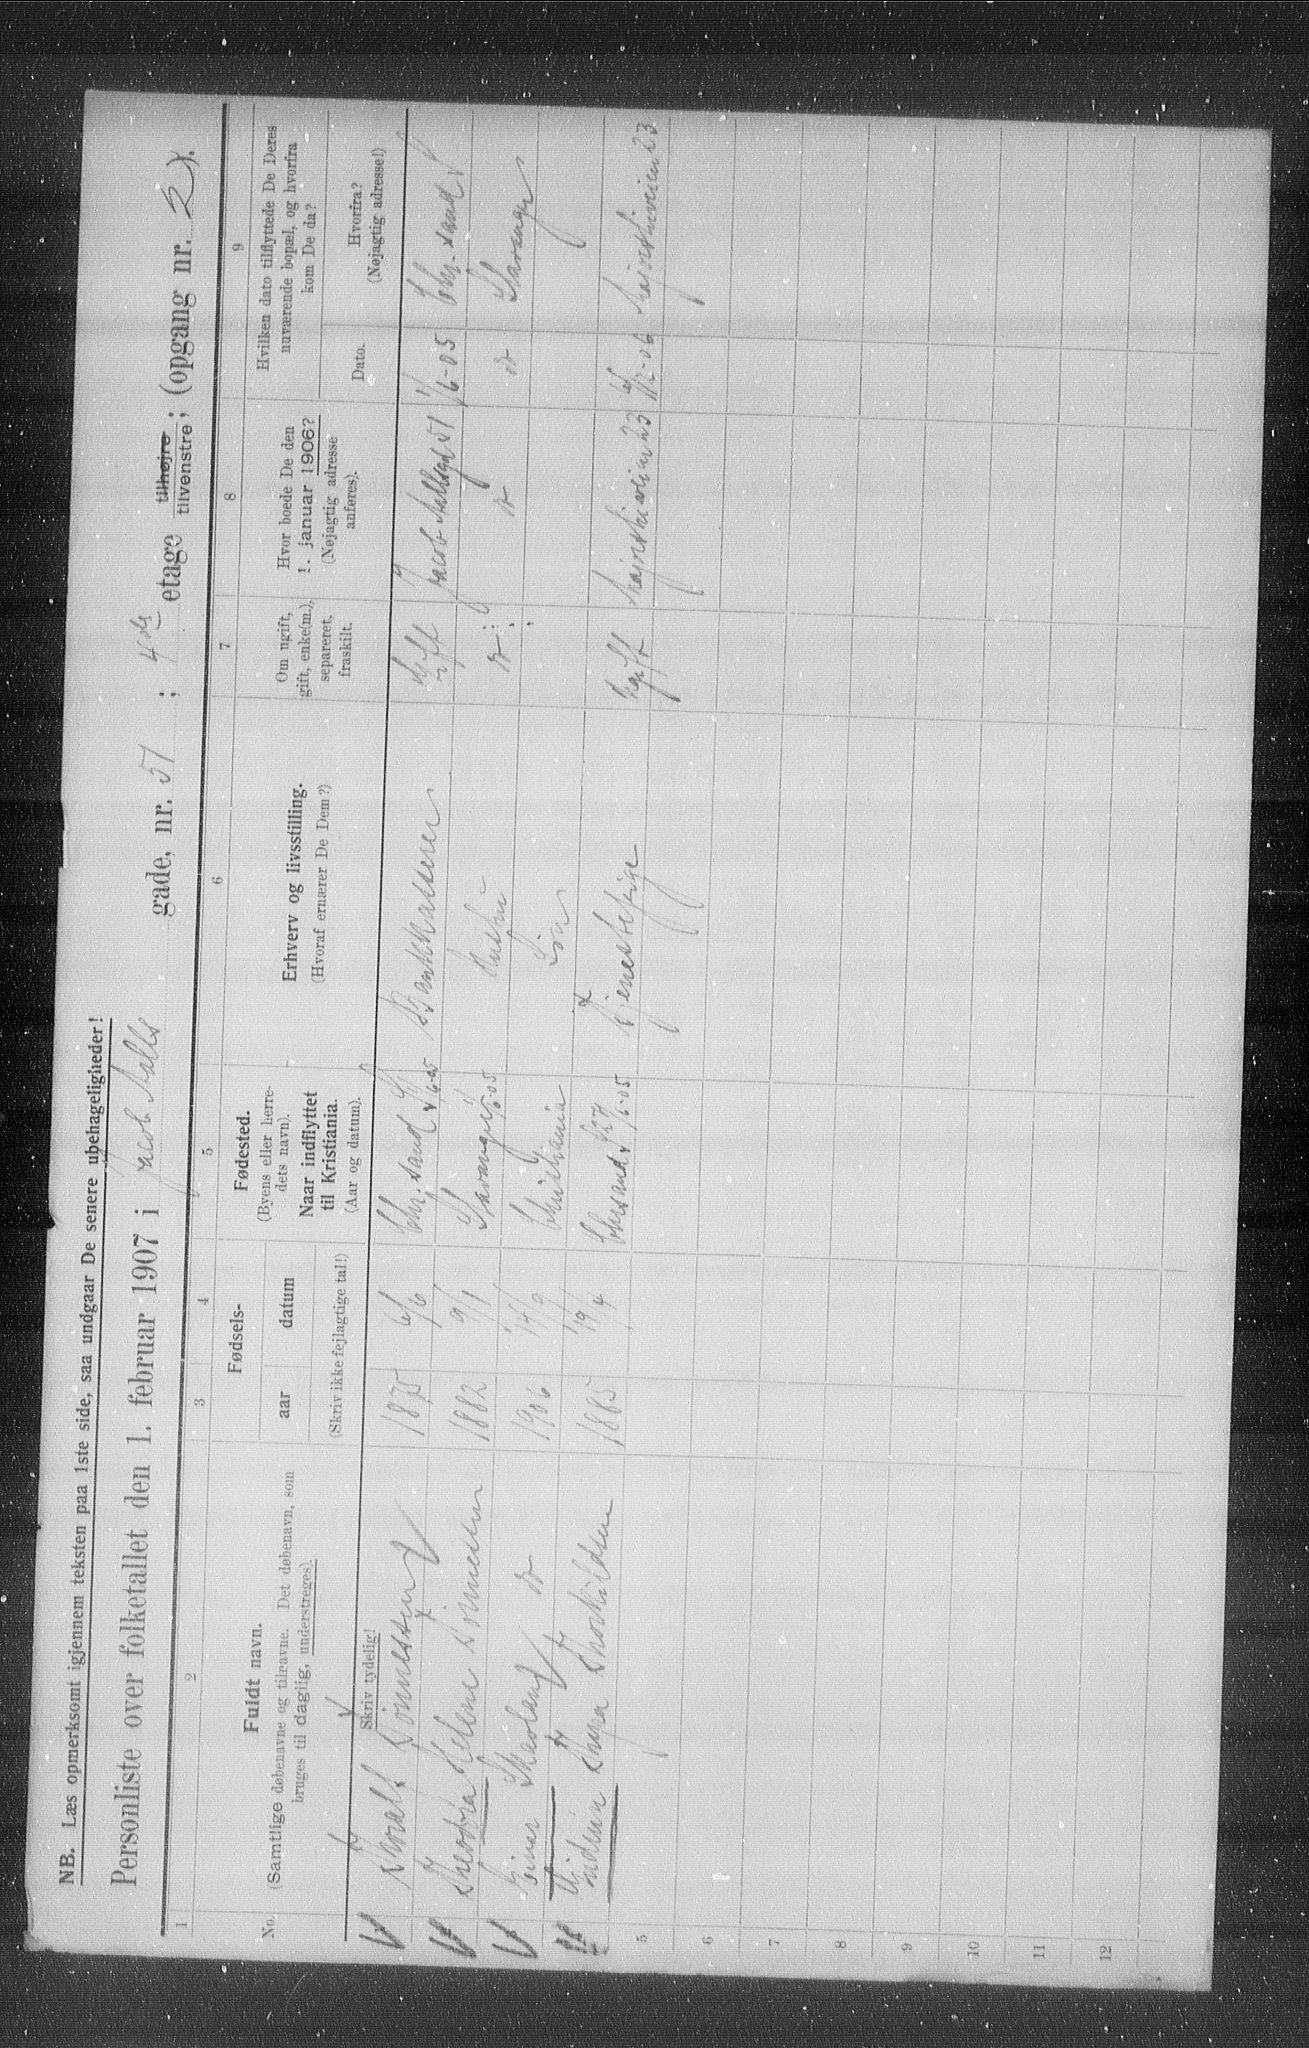 NB. Læs opmerksomt igjennem teksten paa 1ste side, saa undgaar De senere ubehageligheder!
Personliste over folketallet den 1. februar 1907 i Jacob Aalls gade, nr. 51 ; 4de etage tilhøjre tilvenstre; (opgang nr. 2).
1 2 3 4 5 6 7 8 9
No.
Fuldt navn.
(Samtlige døbenavne og tilnavne. Det døbenavn, som
bruges til daglig, understreges).
Skriv tydelig!
Fødsels-
aar datum
(Skriv ikke fejlagtige tal!)
Fødested.
(Byens eller herre-
dets navn).
Naar indflyttet
til Kristiania.
(Aar og datum).
Erhverv og livsstilling.
(Hvoraf ernærer De Dem?)
Om ugift,
gift, enke(m.),
separeret,
fraskilt.
Hvor boede De den
1. januar 1906?
(Nøjagtig adresse
anføres).
Hvilken dato tilflyttede De Deres
nuværende bopæl, og hvorfra
kom De da?
Dato.
Hvorfra?
(Nøjagtig adresse!)
Tønnessen 1875 6/6 Chr.sand S Gift Jacob Aallsgd 51 1/6-05 Chr.sand S
Theodora Helene Tønnessen 1882 9/1 Stavanger 1/6-05 Hustru do do do Stavanger
Einar do 1906 14/9 Christiania Søn
Thorkildsen 1885 19/4 Chrsand S Tjenestepige Ugift 23 23
5
6
7
8
9
10
11
12